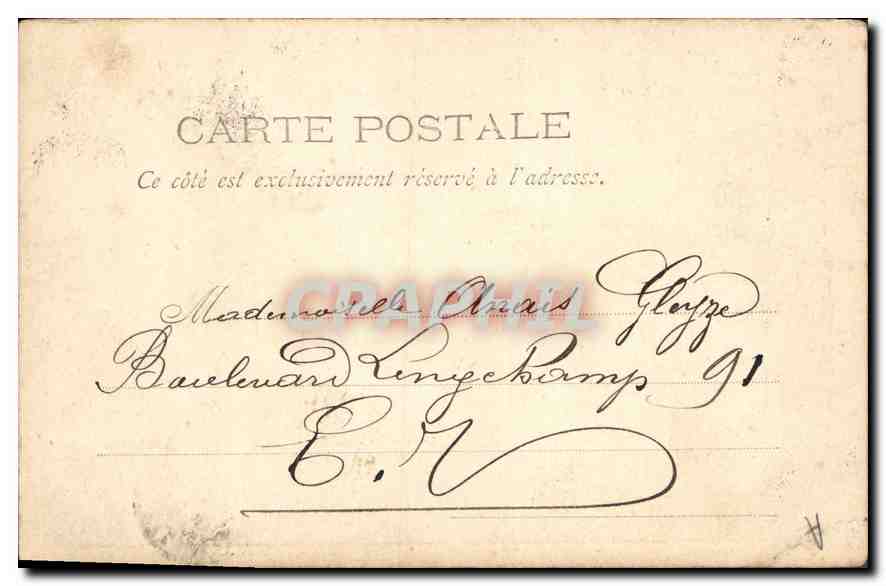 CARTE POSTALE
Ce côté est exclusivement réservé à l'adresse.
Mademoiselle Anais Gleyze
CPAPHIL
Boulevard Longchamp 91
E. V
A